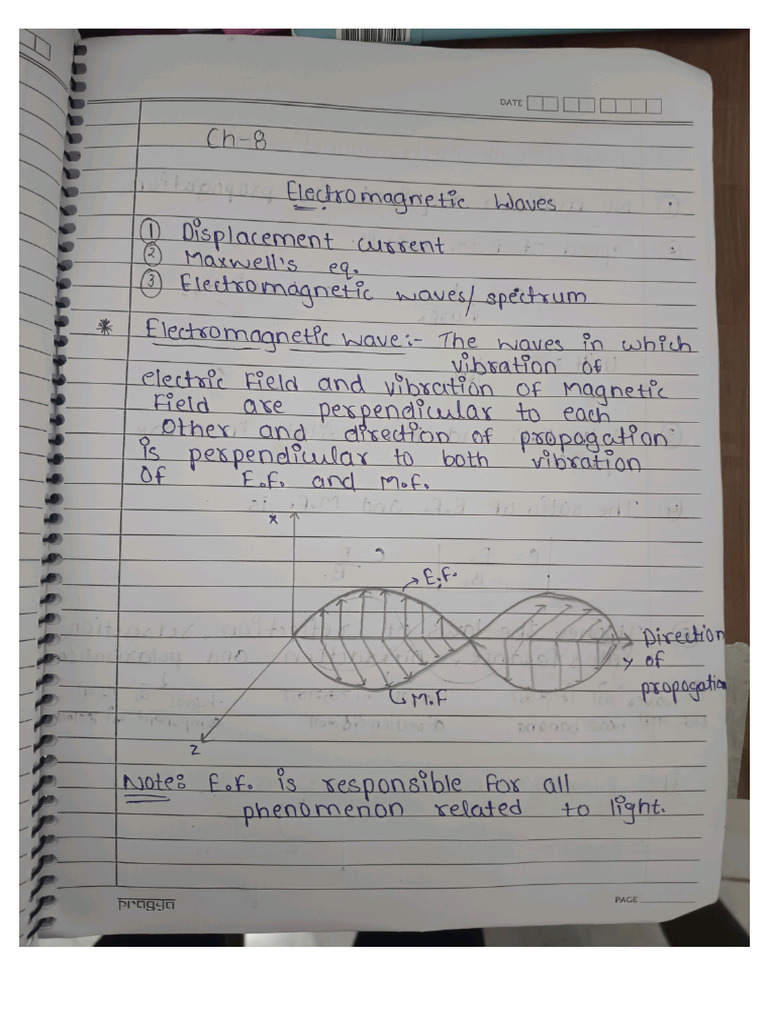 DATE
Ch-8
Electromagnetic Waves
① Displacement current
② Maxwell's eq.
③ Electromagnetic waves/spectrum
* Electromagnetic wave:- The waves in which
vibration of
electric Field and vibration of Magnetic
Field are perpendicular to each
Other and direction of propagation
is perpendicular to both vibration
Of E.F. and M.F.
x
E.F.
Direction
y of
propagation
M.F
z
Note: E.F. is responsible for all
phenomenon related to light.
pragya
PAGE